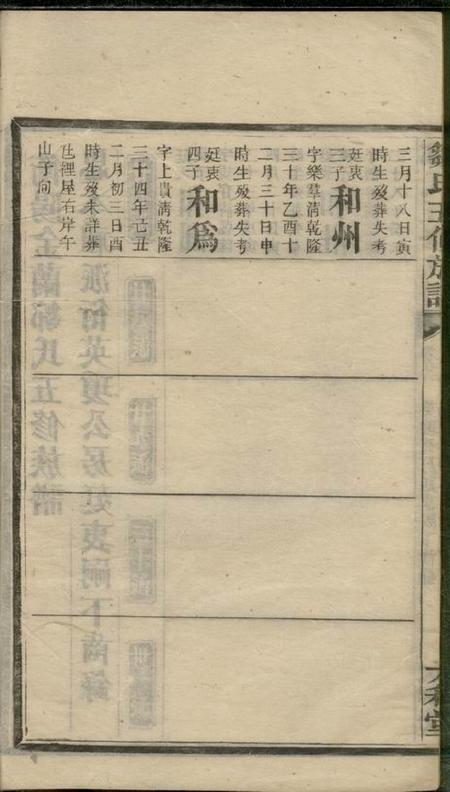 三月十八日寅
時生歿葬失考
廷衷三子和州
字樂羣淸乾隆
三十年乙酉十
二月三十日申
時生歿葬失考
廷衷四子和爲
字上貴淸乾隆
三十四年己丑
二月初三日酉
時生歿未詳葬
屋右岸午
山子向
鄒氏五修族譜